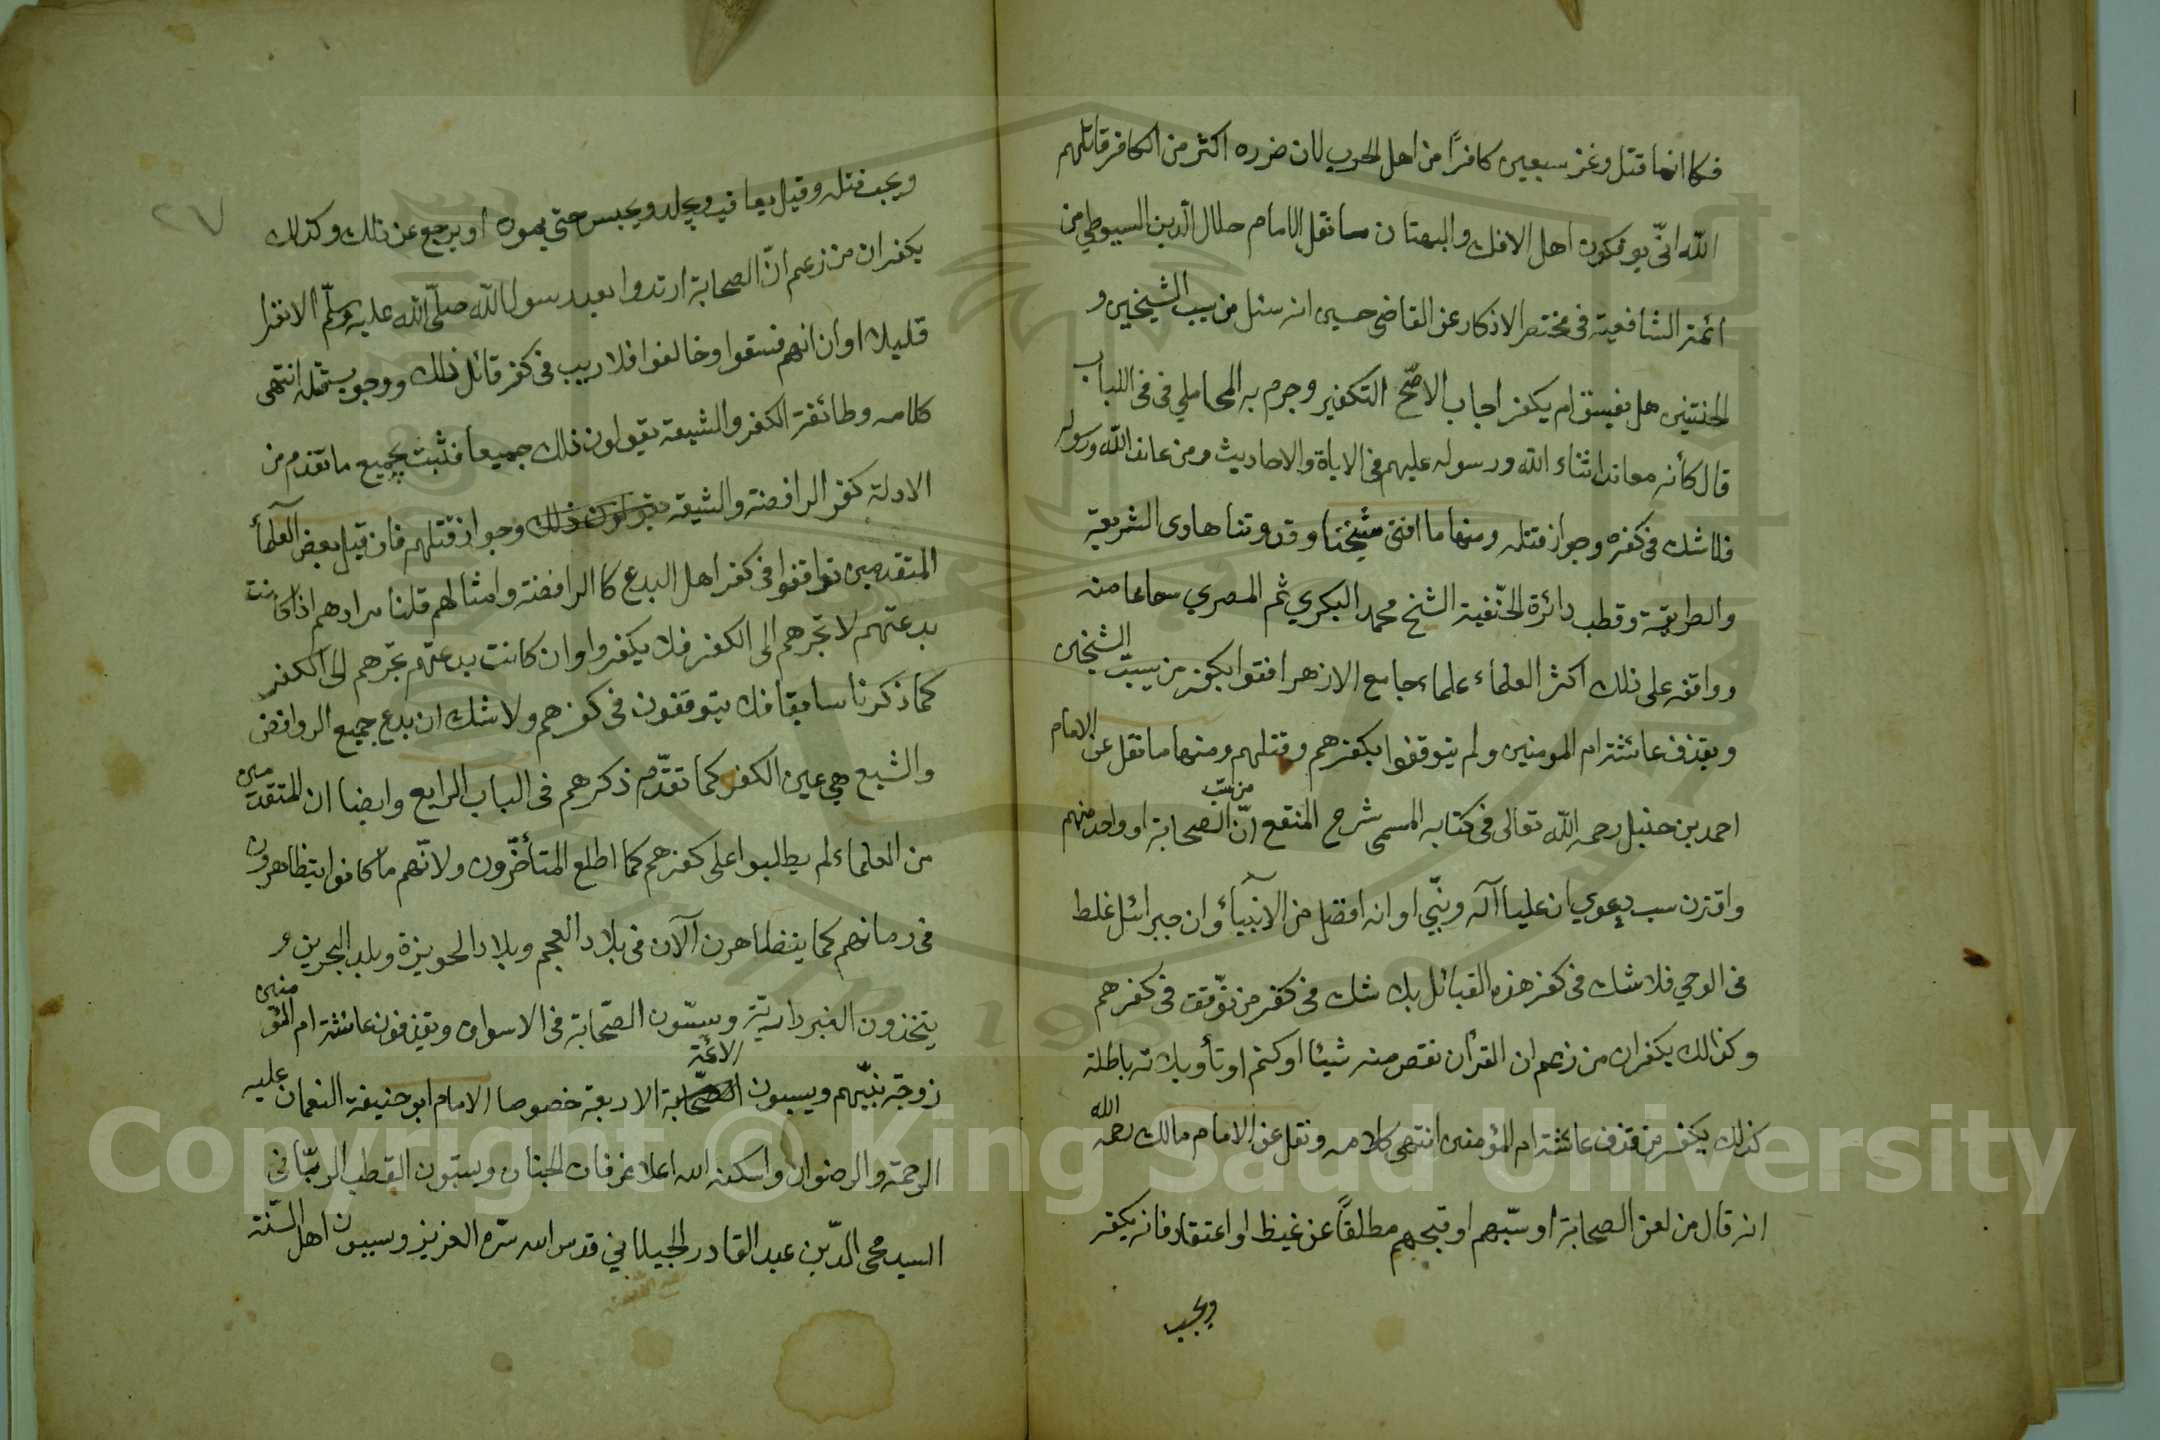 فكا انما قتل وغز سبعين كافرًا من اهل الحرب لان ضرره اكثر من الكافر قاتلهم
الله انّى يوفكون اهل الافك والبهتان ما نقل الامام جلال الدين السيوطي من
ائمة الشافعية في مختصر الاذكار عن القاضي حسين انه سئل من يسب الشيخين و
الختنين هل يفسق ام يكفر اجاب الاصّح التكفير وجزم به المحاملي في في اللباب
قال كأنه معاند اثناء الله ورسوله عليهم في الاياة والاحاديث ومن عاند الله ورسوله
فلا شك في كفره وجواز قتله ومنها ما افتى شيخنا وقدوتنا هادى الشريعة
والطريقة وقطب دائرة الحنّفية الشخ محمد البكري ثم المصري سماعا منه
ووافقه على ذلك اكثر العلماء علماء جامع الازهر افتوا بكفر من يسبّ الشيخين
ويقذف عائشة ام المومنين ولم يتوقفوا بكفرهم وقتلهم ومنها ما نقل عن الامام
احمد بن حنبل رحمه الله تعالى في كتابه المسمى شرح المنقع انّ من سبّ الصحابة او واحد منهم
واقترن سب دعوي ان عليا آله ونبّي او انه افضل من الانبيأ وان جبرائل غلط
في الوحي فلا شك في كفر هذه القبائل بلا شك في كفر من توّقف في كفرهم
وكذالك يكفران من زعم ان القرأن نقص منه شيئا او كتم او تأويلاته باطلة
كذلك يكفر من قذف عائشة ام المؤمنين انتهى كلامه ونقل عن الامام مالك رحمه الله
انه قال من لعن الصحابة او سّبهم او قبحهم مطلقاً عن غيظ او اعتقاد فانه يكفر
ويجب
٢٧
ويجب قتله وقيل يعاقب ويجلد ويحبس حتى يموت او يرجع عن ذلك وكذلك
يكفران من زعم انّ الصحابة ارتدوا بعد رسول الله صلّى الله عليه وسلّم الا نفرا
قليلا او ان انهم فسقوا وخالفوا فلا ريب في كفر قائل ذلك ووجوب قتله انتهى
كلامه وطائفة الكفر والشيعة يقولون ذلك جميعا فثبت بجميع ما تقدم من
الادلة كفر الرافضة والشيعة يقولون ذلك وجواز قتلهم فان قيل بعض العلمأ
المتقدمين توافقوا في كفر اهل البدع كا الرافضة وامثالهم قلنا مرادهم اذا كانت
بدعتهم لا تجرهم الى الكفر فلا يكفروا وان كانت بدعتهم تجرهم الى الكفر
كما ذكرنا سابقا فلا يتوقفون في كفرهم ولا شك ان بدع جميع الروافض
والشيع هي عين الكفر كما تقدّم ذكرهم في الباب الرابع وايضا ان المتقدمين
من العلماء لم يطلبوا على كفرهم كما اطلع المتأخّرون ولانّهم ما كانوا يتظاهرون
في زمانهم كما يتظاهرن آلآن في بلاد العجم وبلاد الحويزة وبلد البحرين و
يتخذون الغبر داسيّة ويسبّون الصّحابة في الاسواق ويقذفون عائشة ام المؤمنين
زوجة نبّيهم ويسبون الصحّابة الائمّة الاربعة خصوصا الامام ابو حنيفة النعمان عليه
الرحمة والرضوان واسكنه الله اعلا غرفات الجنان ويسبّون القطب الربّاني
السيد محى الدّين عبد القادر الجيلاني قدس الله سّره العزيز ويسبون اهل السّنة
Copyright © King Saud University